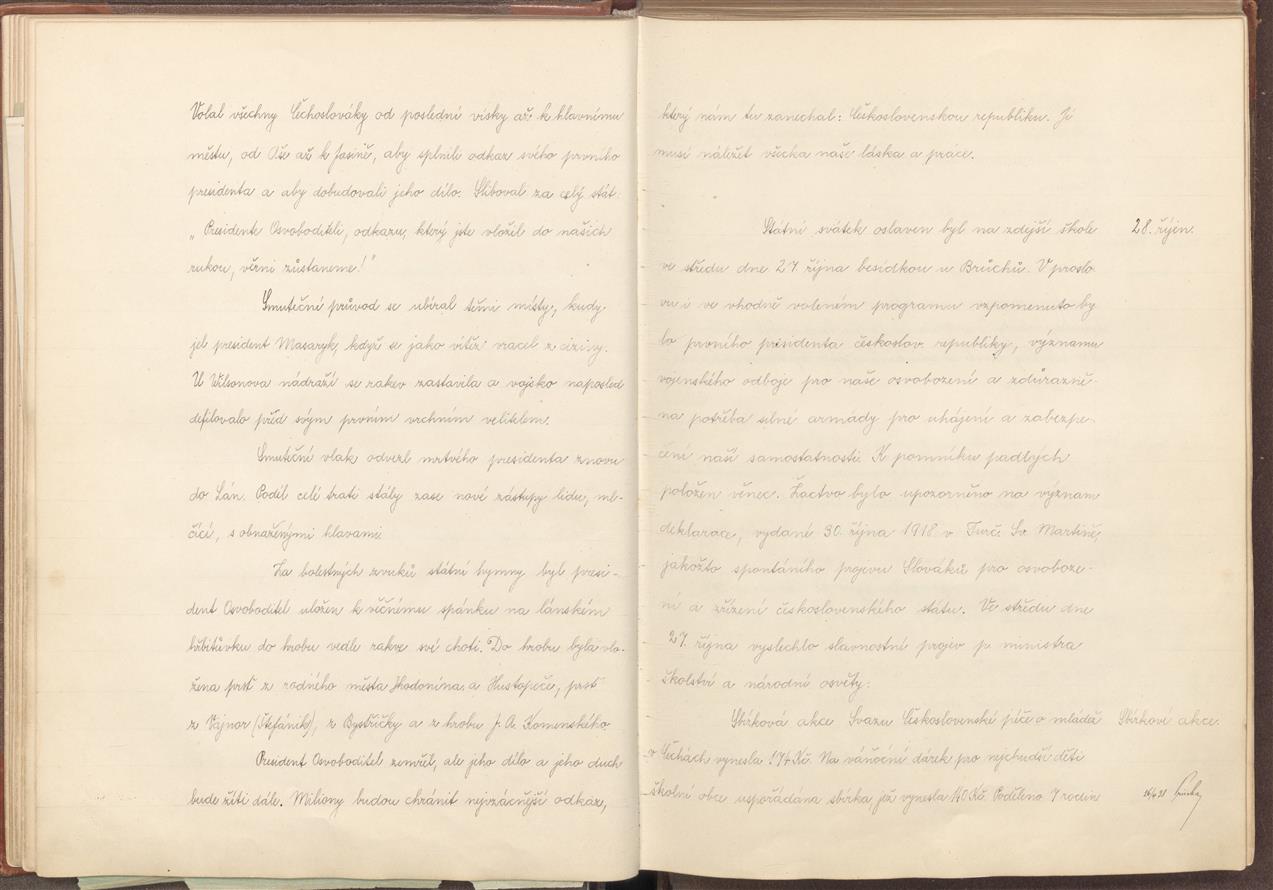 Volal všechny Čechoslováky od poslední vísky až k hlavnímu
městu, od Aše až k Jasině, aby splnili odkaz svého prvního
presidenta a aby dobudovali jeho dílo. Sliboval za celý stát:
„Presidente Osvoboditeli, odkazu, který jste vložil do našich
rukou, věrni zůstaneme!"
Smuteční průvod se ubíral těmi místy, kudy
jel president Masaryk, když se jako vítěz vracel z ciziny.
U Wilsonova nádraží se rakev zastavila a vojsko naposled
defilovalo před svým prvním vrchním velitelem.
Smuteční vlak odvezl mrtvého presidenta znovu
do Lán. Podél celé trati stály zase nové zástupy lidu, ml-
čící, s obnaženými hlavami.
Za bolestných zvuků státní hymny byl presi-
dent Osvoboditel uložen k věčnému spánku na lánském
hřbitůvku do hrobu vedle rakve své choti. Do hrobu byla vlo-
žena prsť z rodného města Hodonína a Hustopeče, prsť
z Vajnor (Štefánik), z Bystřičky a z hrobu J. A. Komenského.
President Osvoboditel zemřel, ale jeho dílo a jeho duch
bude žíti dále. Miliony budou chránit nejvzácnější odkaz,
který nám tu zanechal: Československou republiku. Jí
musí náležet všecka naše láska a práce.
Státní svátek oslaven byl na zdejší škole 28. říjen.
ve středu dne 27. října besídkou u Brůchů. V proslo
vu i ve vhodně voleném programu vzpomenuto by
lo prvního presidenta českoslov. republiky, významu
vojenského odboje pro naše osvobození a zdůrazně-
na potřeba silné armády pro uhájení a zabezpe-
čení naší samostatnosti. K pomníku padlých
položen věnec. Žactvo bylo upozorněno na význam
deklarace, vydané 30. října 1918 v Turč. Sv. Martině,
jakožto spontáního projevu Slováků pro osvoboze-
ní a zřízení československého státu. Ve středu dne
27. října vyslechlo slavnostní projev p. ministra
školství a národní osvěty.
Sbírková akce Svazu Československé péče o mládež Sbírkové akce.
v Čechách vynesla 174 Kč. Na vánoční dárek pro nejchudší děti
školní obce uspořádána sbírka, jež vynesla 140 Kč. Poděleno 7 rodin